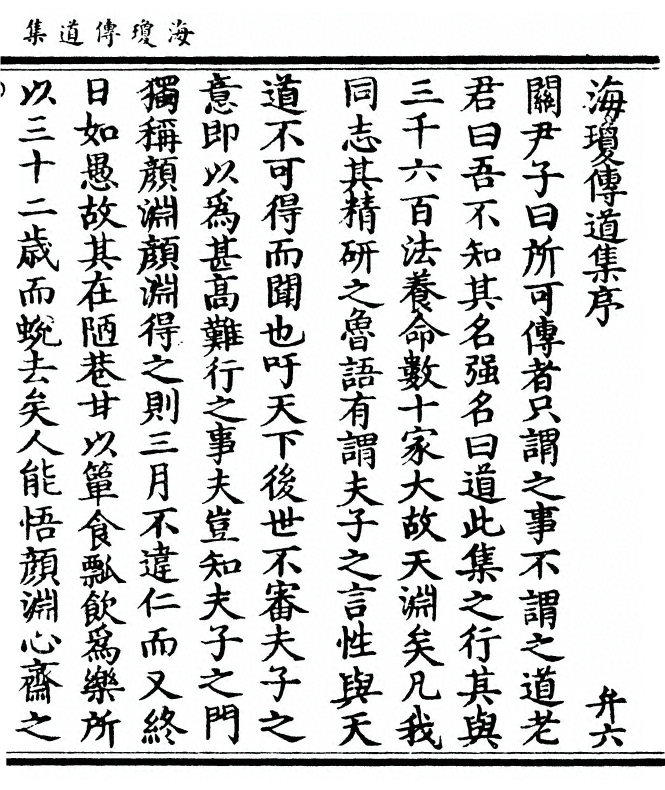 海瓊傳道集
海瓊傳道集序
弁六
關尹子曰所可傳者只謂之事不謂之道老
君曰吾不知其名强名曰道此集之行其與
三千六百法養命數十家大故天淵矣凡我
同志其精研之魯語有謂夫子之言性與天
道不可得而聞也吁天下後世不審夫子之
意即以爲甚高難行之事夫豈知夫子之門
獨稱顔淵顔淵得之則三月不違仁而又終
日如愚故其在陋巷甘以簞食瓢飲爲樂所
以三十二歲而蛻去矣人能悟顔淵心齋之